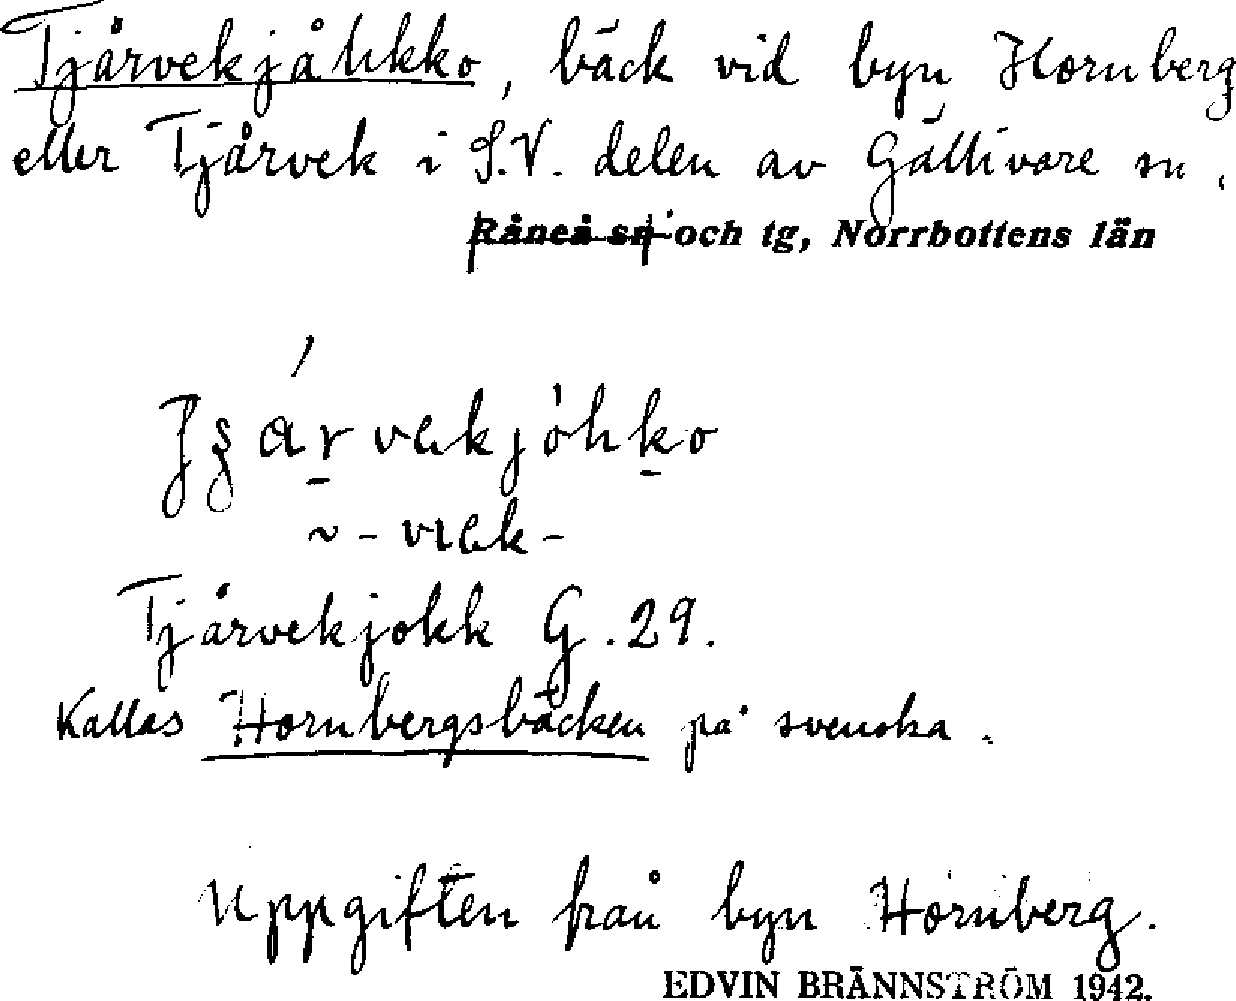 Tjårvekjåhkko, bäck vid byn Hornberg
eller Tjårvek i S.V. delen av Gällivare sn.
Råneå sn och tg, Norrbottens län
~ - viek -
Tjårvekjokk G. 29.
Kallas Hornbergsbäcken på svenska.
Uppgiften från byn Hornberg.
EDVIN BRÄNNSTRÖM 1942.